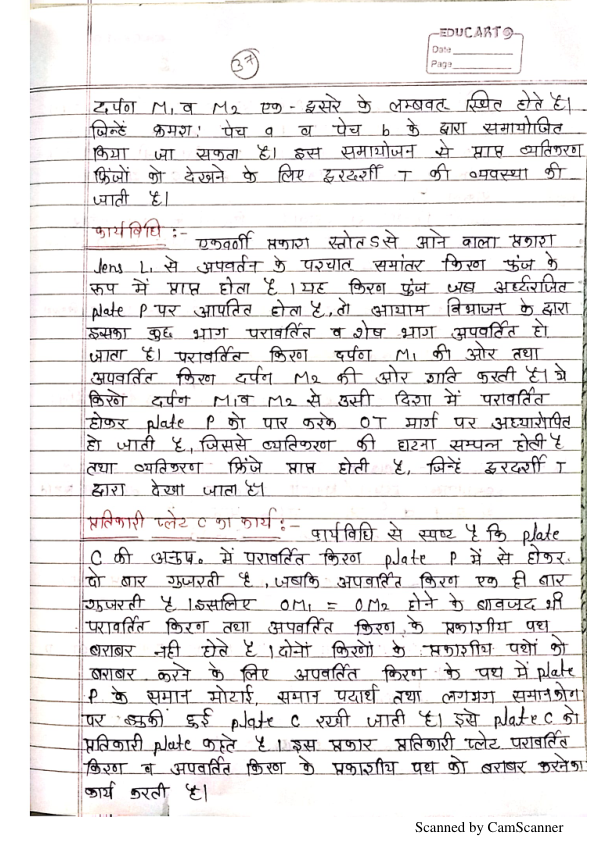 EDUCART
Date
Page
37
दर्पण M₁ व M₂ एक - दूसरे के लम्बवत स्थित होते है।
जिन्हें क्रमश: पेच a व पेच b के द्वारा समायोजित
किया जा सकता है। इस समायोजन से प्राप्त व्यतिकरण
फ्रिंजों को देखने के लिए दूरदर्शी T की व्यवस्था की
जाती है।
कार्यविधि :- एकवर्णी प्रकाश स्तोत S से आने वाला प्रकाश
lens L₁ से अपवर्तन के पश्चात समांतर किरण पुंज के
रूप में प्राप्त होता है । यह किरण पुंज जब अर्ध्दरजित
plate P पर आपतित होता है, तो आयाम विभाजन के द्वारा
इसका कुछ भाग परावर्तित व शेष भाग अपवर्तित हो
जाता है। परावर्तित किरण दर्पण M₁ की ओर तथा
अपवर्तित किरण दर्पण M₂ की ओर गति करती है। ये
किरणे दर्पण M₁ व M₂ से उसी दिशा में परावर्तित
होकर plate P को पार करके OT मार्ग पर अध्यारोपित
हो जाती है, जिससे व्यतिकरण की घटना सम्पन्न होती है
तथा व्यतिकरण फ्रिंजे प्राप्त होती है, जिन्हें दूरदर्शी T
द्वारा देखा जाता है।
प्रतिकारी प्लेट C का कार्य :- कार्यविधि से स्पष्ट है कि plate
C की अनुप॰ में परावर्तित किरण plate P में से होकर
दो बार गुजरती है, जबकि अपवर्तित किरण एक ही बार
गुजरती है । इसलिए OM₁ = OM₂ होने के बावजूद भी
परावर्तित किरण तथा अपवर्तित किरण के प्रकाशीय पथ
बराबर नही होते है । दोनों किरणों के प्रकाशीय पथों को
बराबर करने के लिए अपवर्तित किरण के पथ में plate
P के समान मोटाई, समान पदार्थ तथा लगभग समान कोण
पर झुकी हुई plate C रखी जाती है। इसे plate C को
प्रतिकारी plate कहते है । इस प्रकार प्रतिकारी प्लेट परावर्तित
किरण व अपवर्तित किरण के प्रकाशीय पथ को बराबर करने का
कार्य करती है।
Scanned by CamScanner